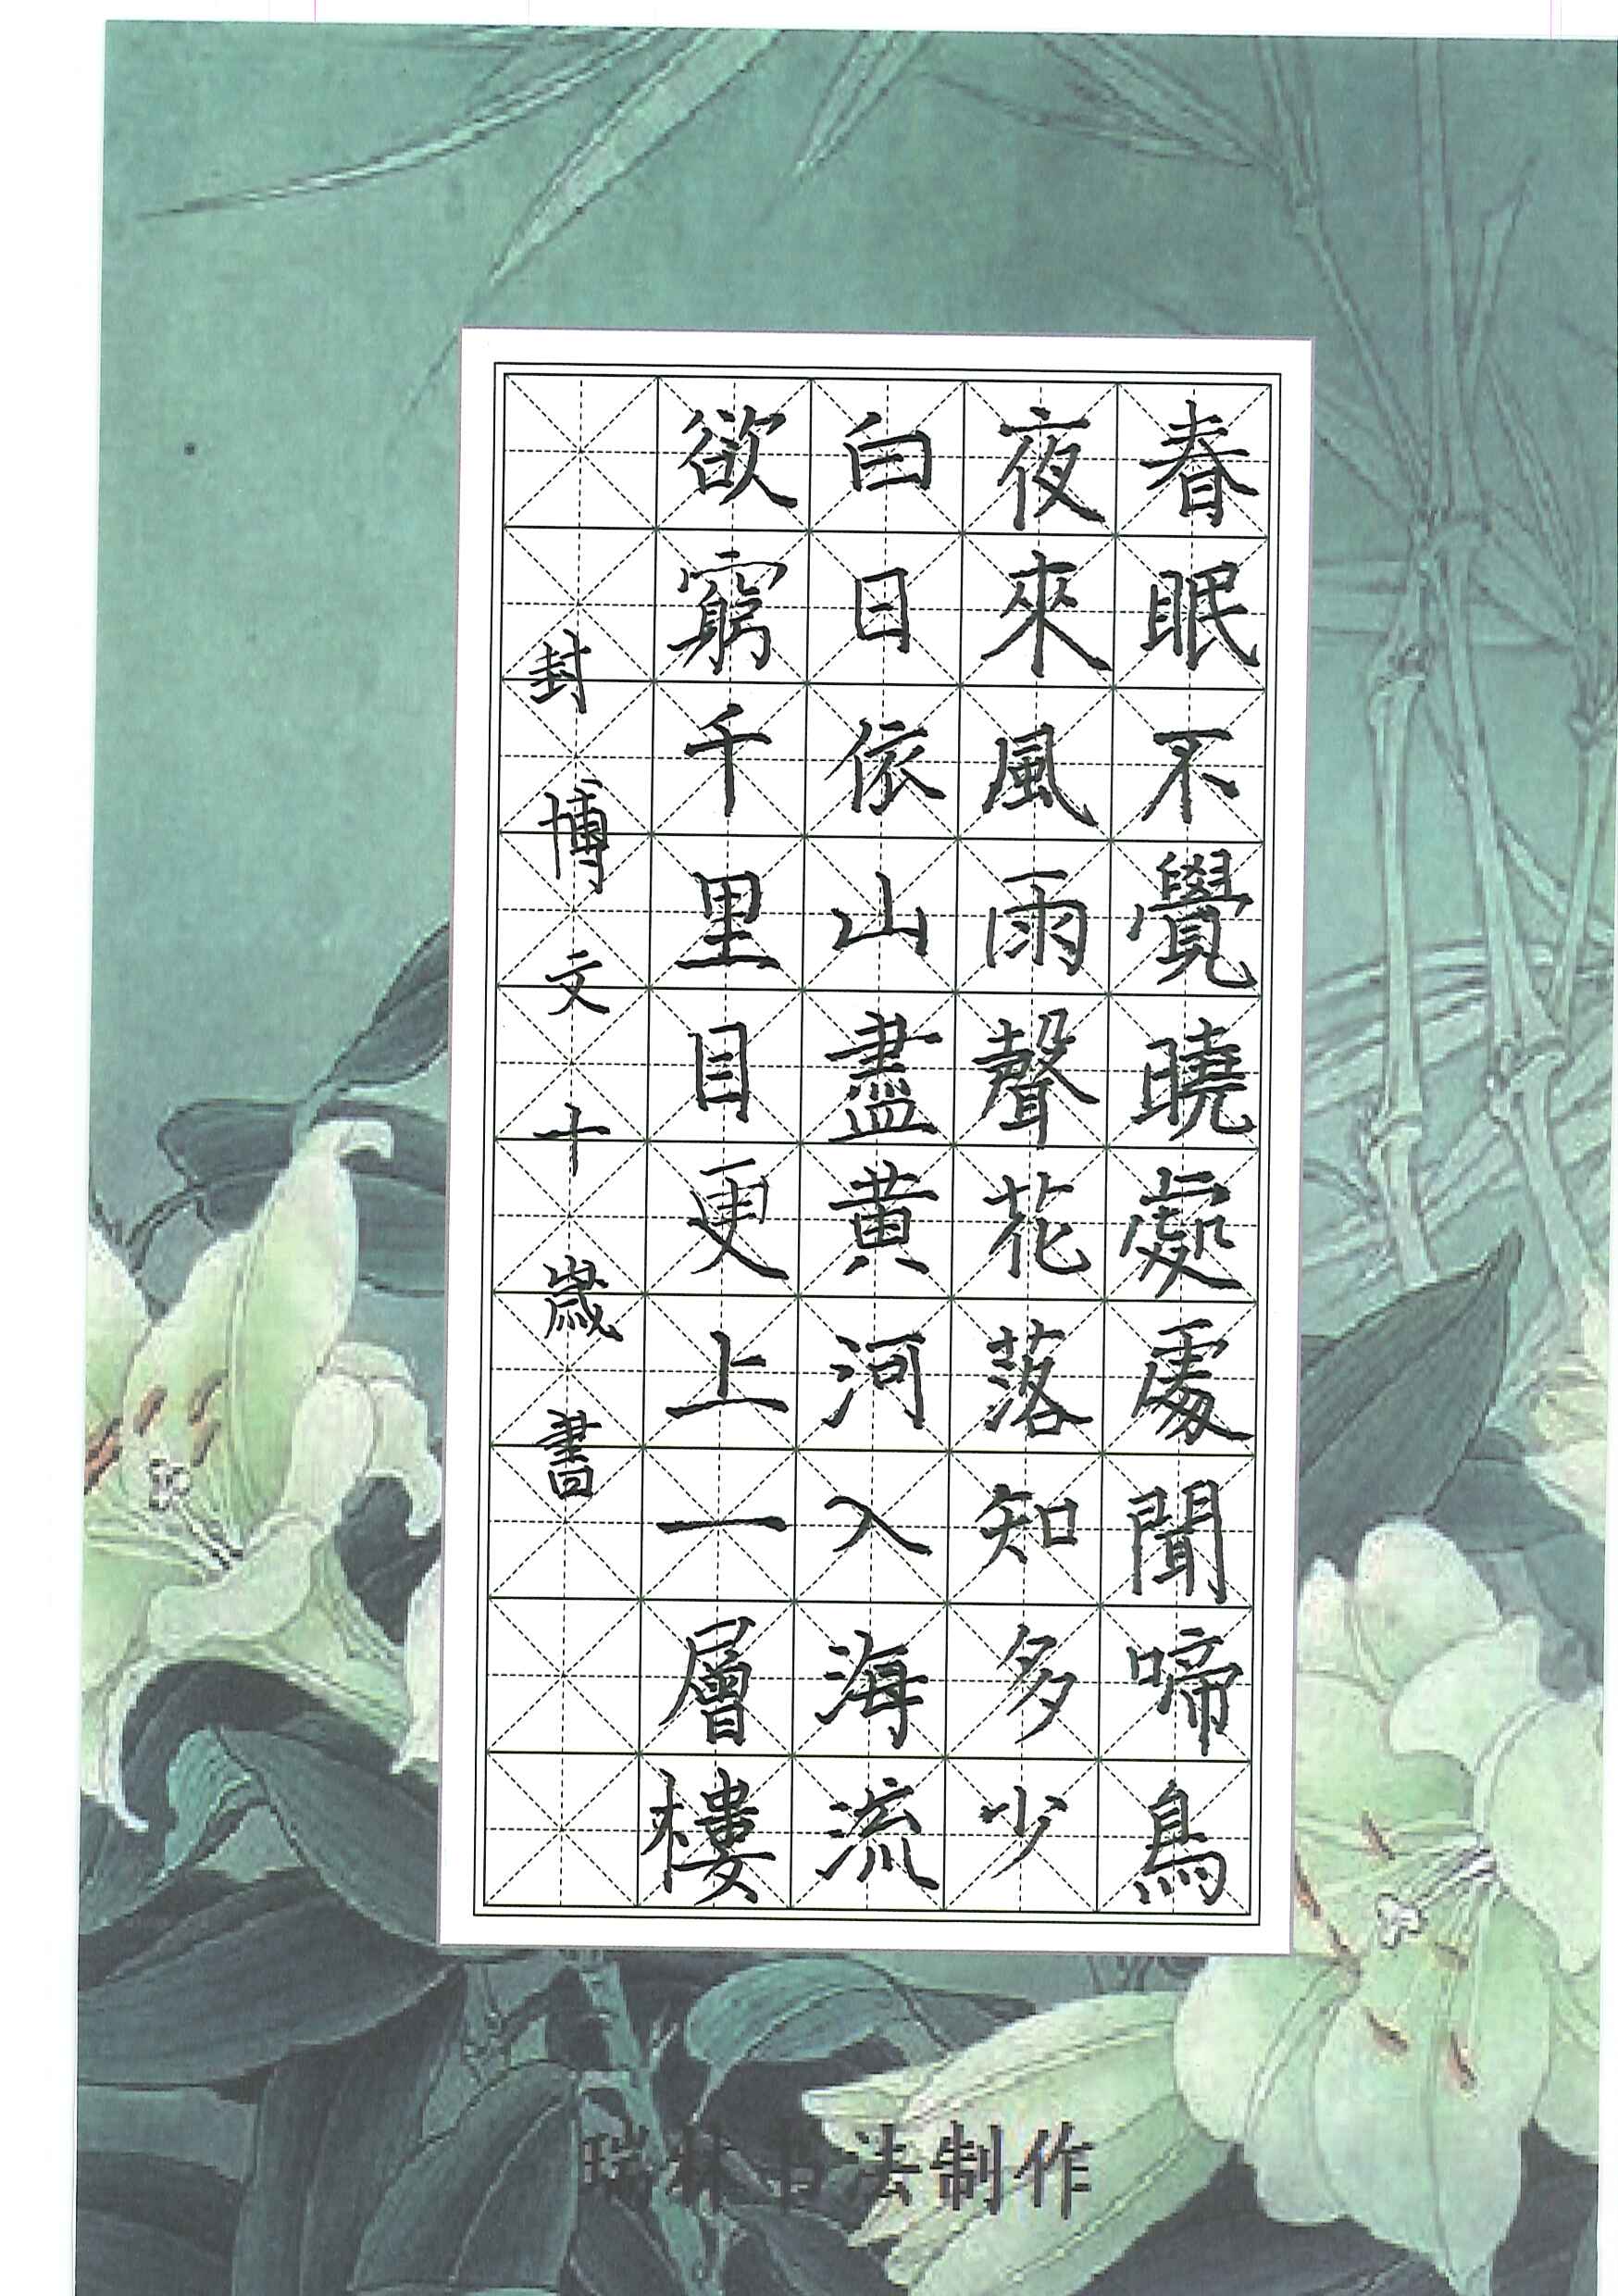 春眠不覺曉處處聞啼鳥
夜來風雨聲花落知多少
白日依山盡黄河入海流
欲窮千里目更上一層樓
封博文十歲書
瑞林书法制作